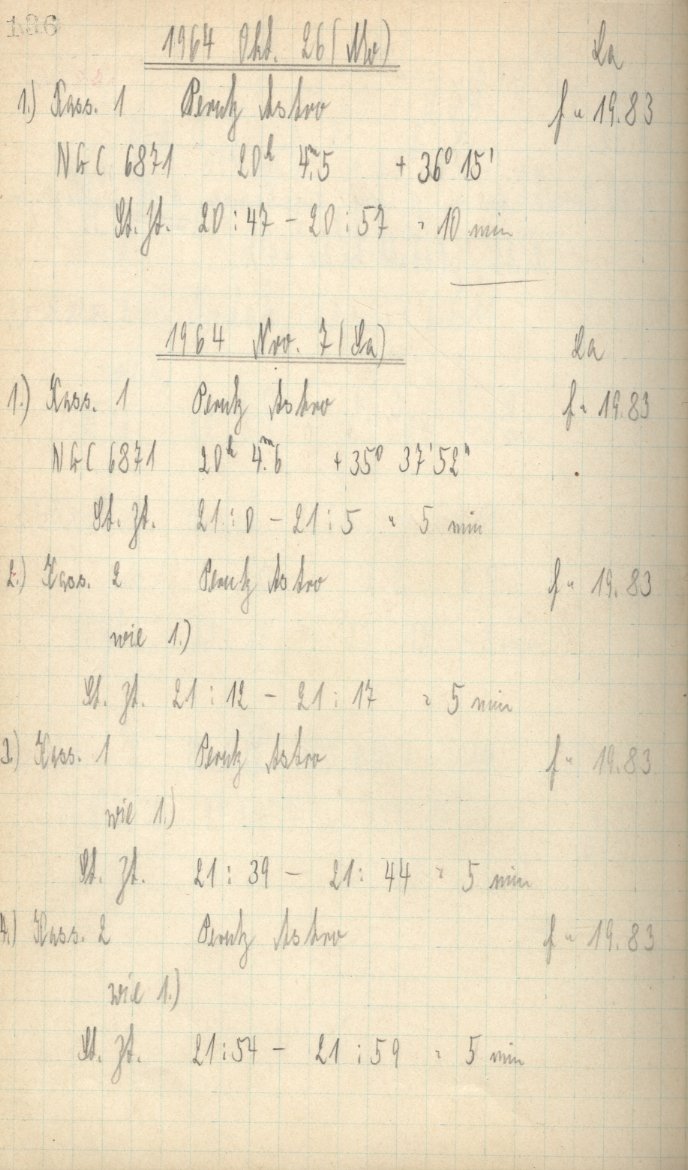 136
1964 Okt. 26 (Mo) La
1.) Kass. 1 Perutz Astro f = 19.83
NGC 6871 20h 4m.5 + 36° 15'
St. Zt. 20:47 - 20:57 = 10 min
1964 Nov. 7 (Sa) La
1.) Kass. 1 Perutz Astro f = 19.83
NGC 6871 20h 4m.6 + 35° 37' 52"
St. Zt. 21:0 - 21:5 = 5 min
2.) Kass. 2 Perutz Astro f = 19.83
wie 1.)
St. Zt. 21:12 - 21:17 = 5 min
3.) Kass. 1 Perutz Astro f = 19.83
wie 1.)
St. Zt. 21:39 - 21:44 = 5 min
4.) Kass. 2 Perutz Astro f = 19.83
wie 1.)
St. Zt. 21:54 - 21:59 = 5 min